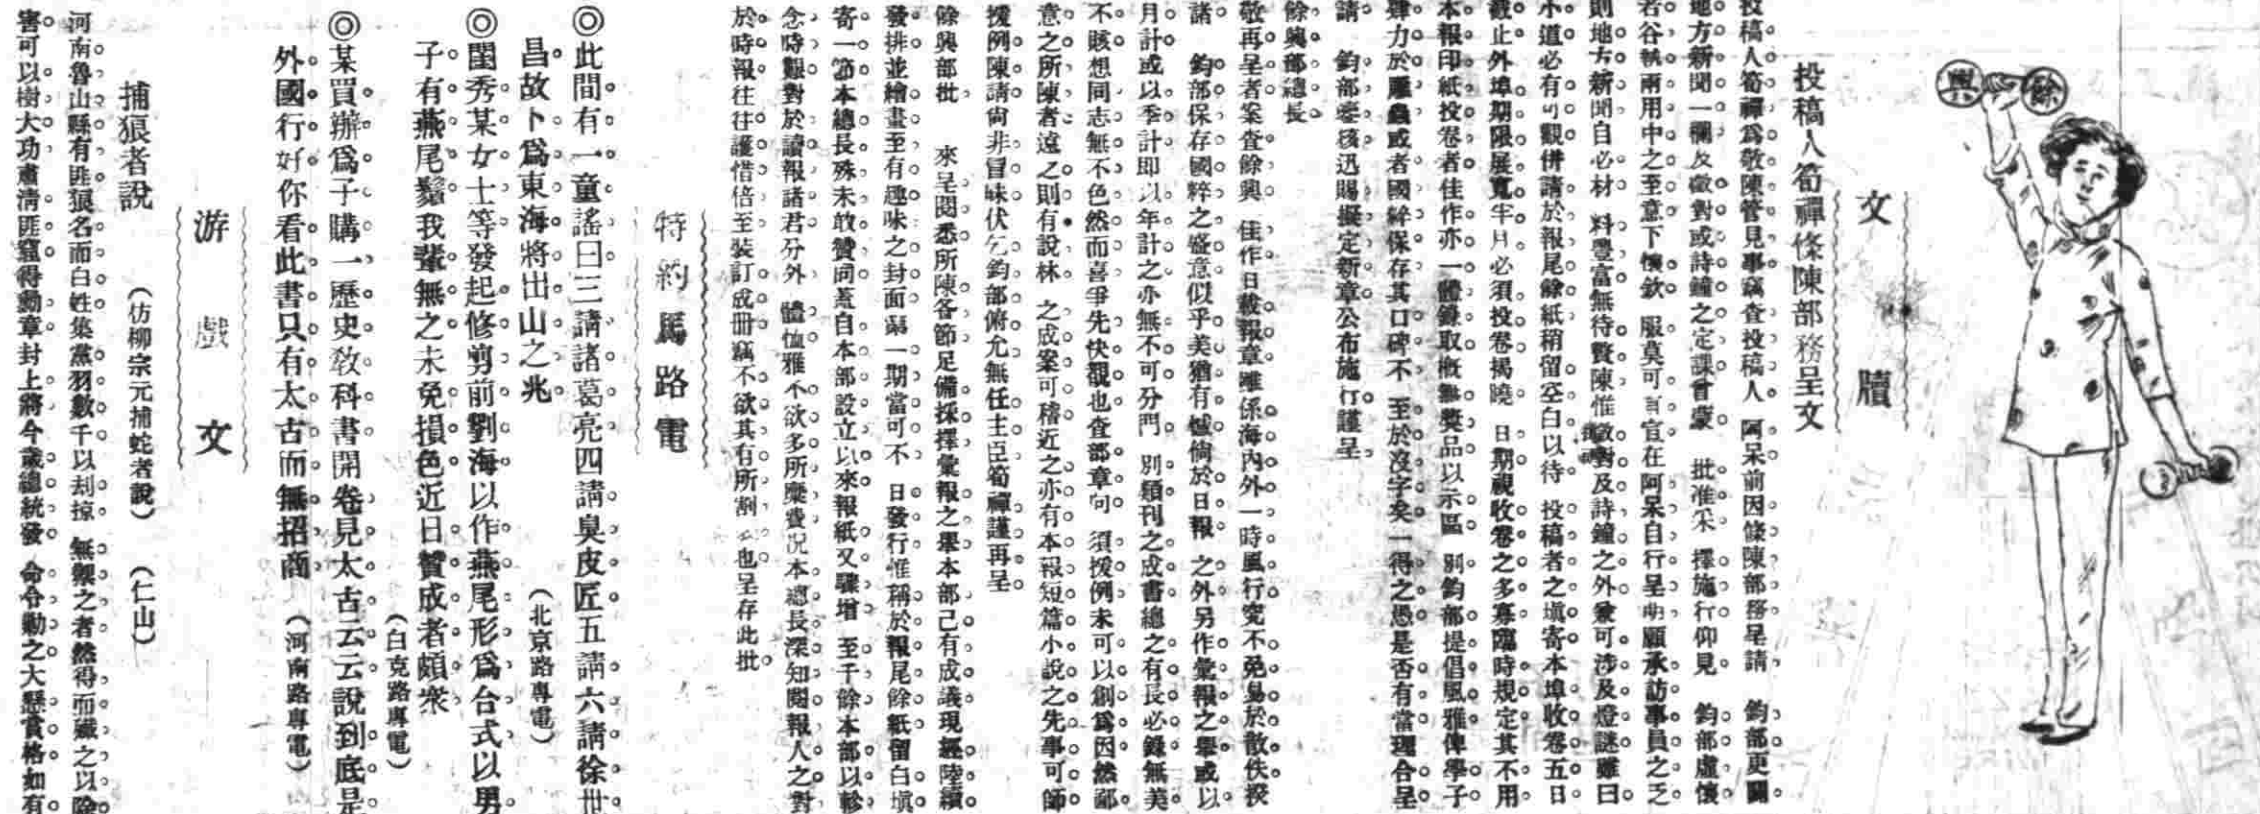 餘興
文牘
投稿人筍禪條陳部務呈文
投稿人筍禪爲敬陳管見事竊查投稿人 阿呆前因條陳部務呈請 鈞部更闢
地方新聞一欄及徵對或詩鐘之定課曾蒙 批准采 擇施行仰見 鈞部虛懷
若谷執兩用中之至意下懷欽 服莫可言宣在阿呆自行呈明願承訪事員之乏
則地方新聞自必材 料豐富無待贅陳惟徵對及詩鐘之外兼可涉及燈謎雖曰
小道必有可觀倂請於報尾餘紙稍留空白以待 投稿者之塡寄本埠收卷五日
截止外埠期限展寬半月必須投卷揭曉 日期視收卷之多寡臨時規定其不用
本報印紙投卷者佳作亦一體錄取槪無獎品以示區 別鈞部提倡風雅俾學子
肆力於雕蟲或者國粹保存其口碑不 至於沒字矣一得之愚是否有當理合呈
請 鈞部鑒核迅賜擬定新章公布施行謹呈
餘興部總長
敬再呈者案查餘興 佳作日載報章雖係海內外一時風行究不免易於散佚揆
諸 鈞部保存國粹之盛意似乎美猶有憾倘於日報 之外另作彙報之舉或以
月計或以季計即以年計之亦無不可分門 別類刊之成書總之有長必錄無美
不賅想同志無不色然而喜爭先快覩也查部章句 須援例未可以創爲因然鄙
意之所陳者遠之則有說林 之成案可稽近之亦有本報短篇小說之先事可師
援例陳請尙非冒昧伏乞鈞部俯允無任主臣筍禪謹再呈
餘興部批 來呈閱悉所陳各節足備採擇彙報之舉本部己有成議現經陸續
發排並繪畫至有趣味之封面第一期當可不 日發行惟稱於報尾餘紙留白塡
寄一節本總長殊未敢贊同蓋自本部設立以來報紙又驟增 至千餘本部以軫
念時艱對於讀報諸君分外 體恤雅不欲多所糜費况本總長深知閱報人之對
於時報往往護惜倍至裝訂成册竊不欲其有所割 也呈存此批
特約馬路電
◎此間有一童謠曰三請諸葛亮四請臭皮匠五請六請徐世
昌故卜爲東海將出山之兆 （北京路專電）
◎閨秀某女士等發起修剪前劉海以作燕尾形爲台式以男
子有燕尾鬚我輩無之未免損色近日贊成者頗衆
（白克路專電）
◎某買辦爲子購一歷史敎科書開卷見太古云云說到底是
外國行好你看此書只有太古而無招商 （河南路專電）
游戲文
捕狼者說 （仿柳宗元捕蛇者說） （仁山）
河南魯山縣有匪狼名而白姓集黨羽數千以刦掠 無禦之者然得而殲之以除
害可以樹大功肅淸匪窟得勳章封上將今歲總統發 命令勸之大懸賞格如有